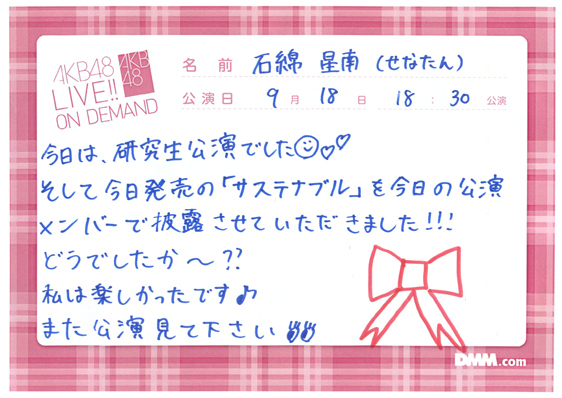 AKB48
LIVE!!
ON DEMAND
AKB
48
名前 石綿 星南 (せなたん)
公演日 9月 18日 18:30 公演
今日は、研究生公演でした
そして今日発売の「サステナブル」を今日の公演
メンバーで披露させていただきました!!!
どうでしたか〜??
私は楽しかったです♪
また公演見て下さい
DMM.com